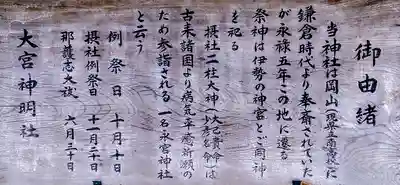 御由緒
当神社は岡山(現県立南農林)に
鎌倉時代より奉斎されていた
が永禄五年この地に遷る
祭神は伊勢の神宮とご同神
を祀る
摂社二柱大神(大己貴命 少彦名命)は
古来諸国より病気平癒祈願の
ため参詣される 一名永宮神社
と云う
例祭日 十月十日
摂社例祭日 十一月二十日
那護志大祓 六月三十日
大宮神明社